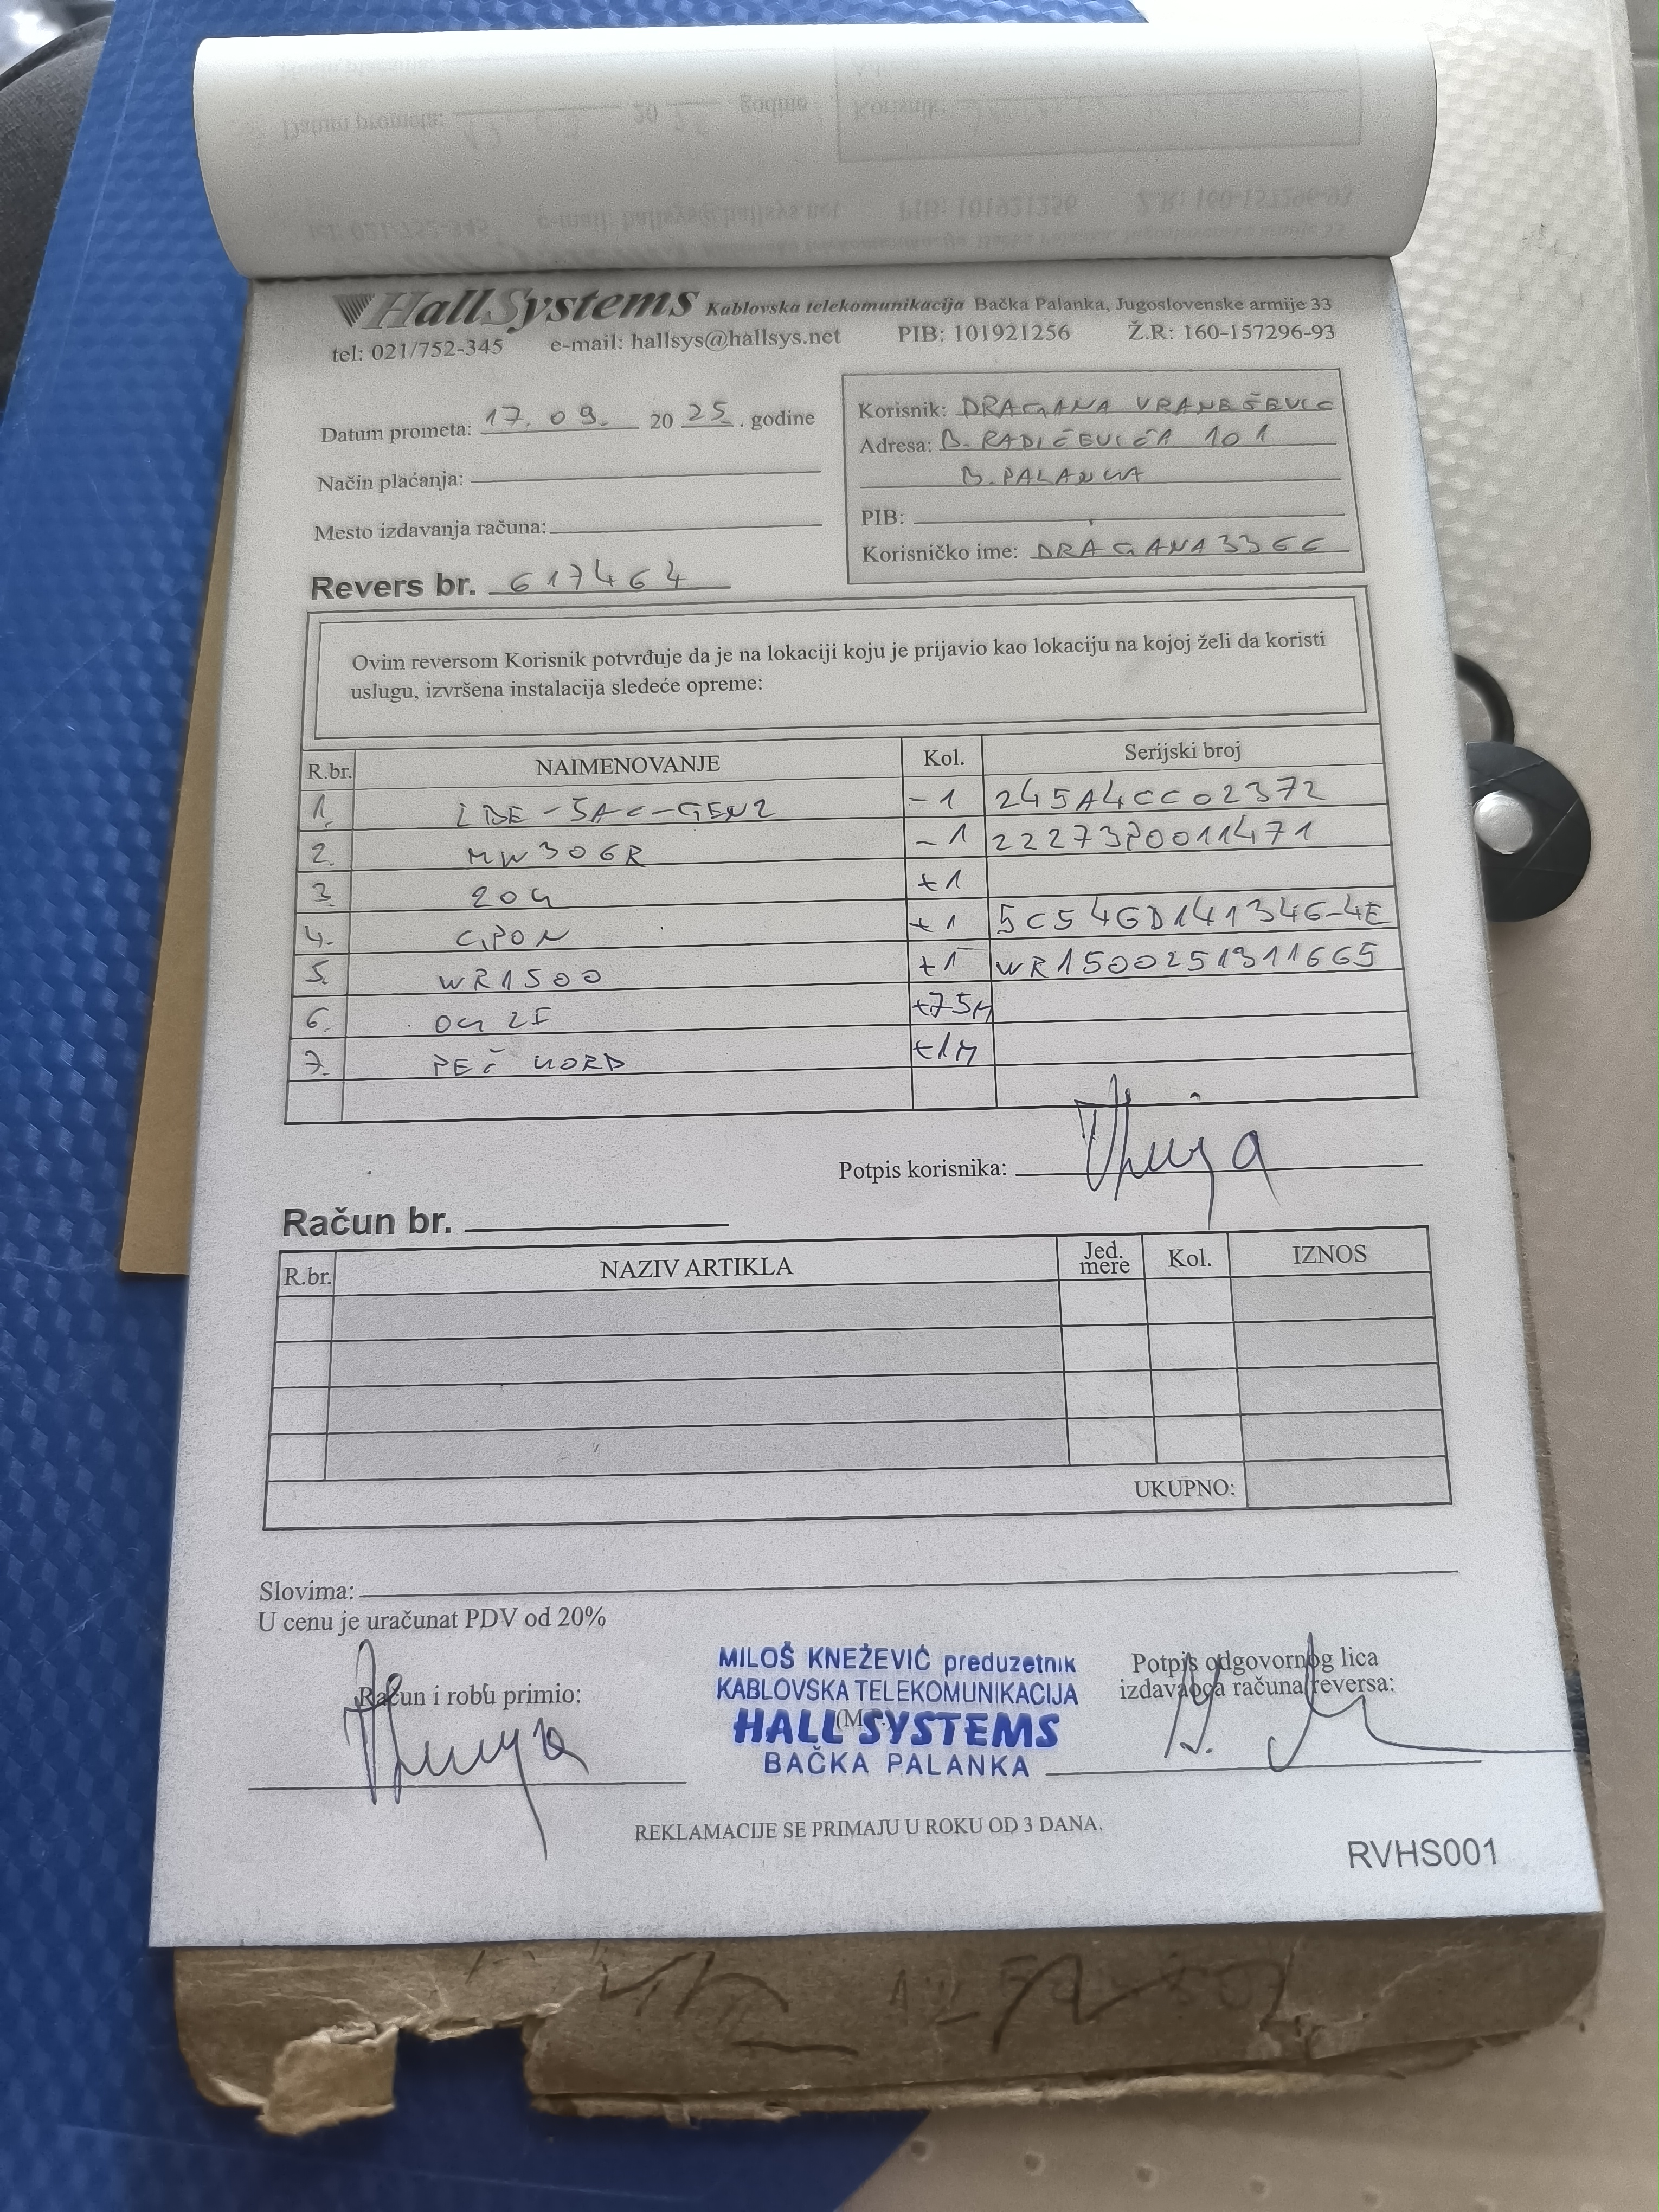 HallSystems Kablovska telekomunikacija Bačka Palanka, Jugoslovenske armije 33
tel: 021/752-345 e-mail: hallsys@hallsys.net PIB: 101921256 Ž.R: 160-157296-93
Datum prometa: 17. 09. 20 25. godine
Način plaćanja:
Mesto izdavanja računa:
Revers br. 617464
Korisnik: DRAGANA VRANEŠEVIC
Adresa: B. RADIČEVIĆA 101
B. PALANKA
PIB:
Korisničko ime: DRAGANA3366
Ovim reversom Korisnik potvrđuje da je na lokaciji koju je prijavio kao lokaciju na kojoj želi da koristi
uslugu, izvršena instalacija sledeće opreme:
R.br. NAIMENOVANJE Kol. Serijski broj
1. LBE-5AC-GEN2 -1 245A4CC02372
2. MW306R -1 22273P0011471
3. ZOK +1
4. GPON +1 5C54GD141346-4E
5. WR1500 +1 WR1500251311665
6. OK 2F +75M
7. PEČ KORD +1M
Potpis korisnika:
Račun br.
R.br. NAZIV ARTIKLA Jed. mere Kol. IZNOS
UKUPNO:
Slovima:
U cenu je uračunat PDV od 20%
Račun i robu primio:
MILOŠ KNEŽEVIĆ preduzetnik
KABLOVSKA TELEKOMUNIKACIJA
HALL SYSTEMS
BAČKA PALANKA
Potpis odgovornog lica
izdavaoca računa/reversa:
REKLAMACIJE SE PRIMAJU U ROKU OD 3 DANA.
RVHS001